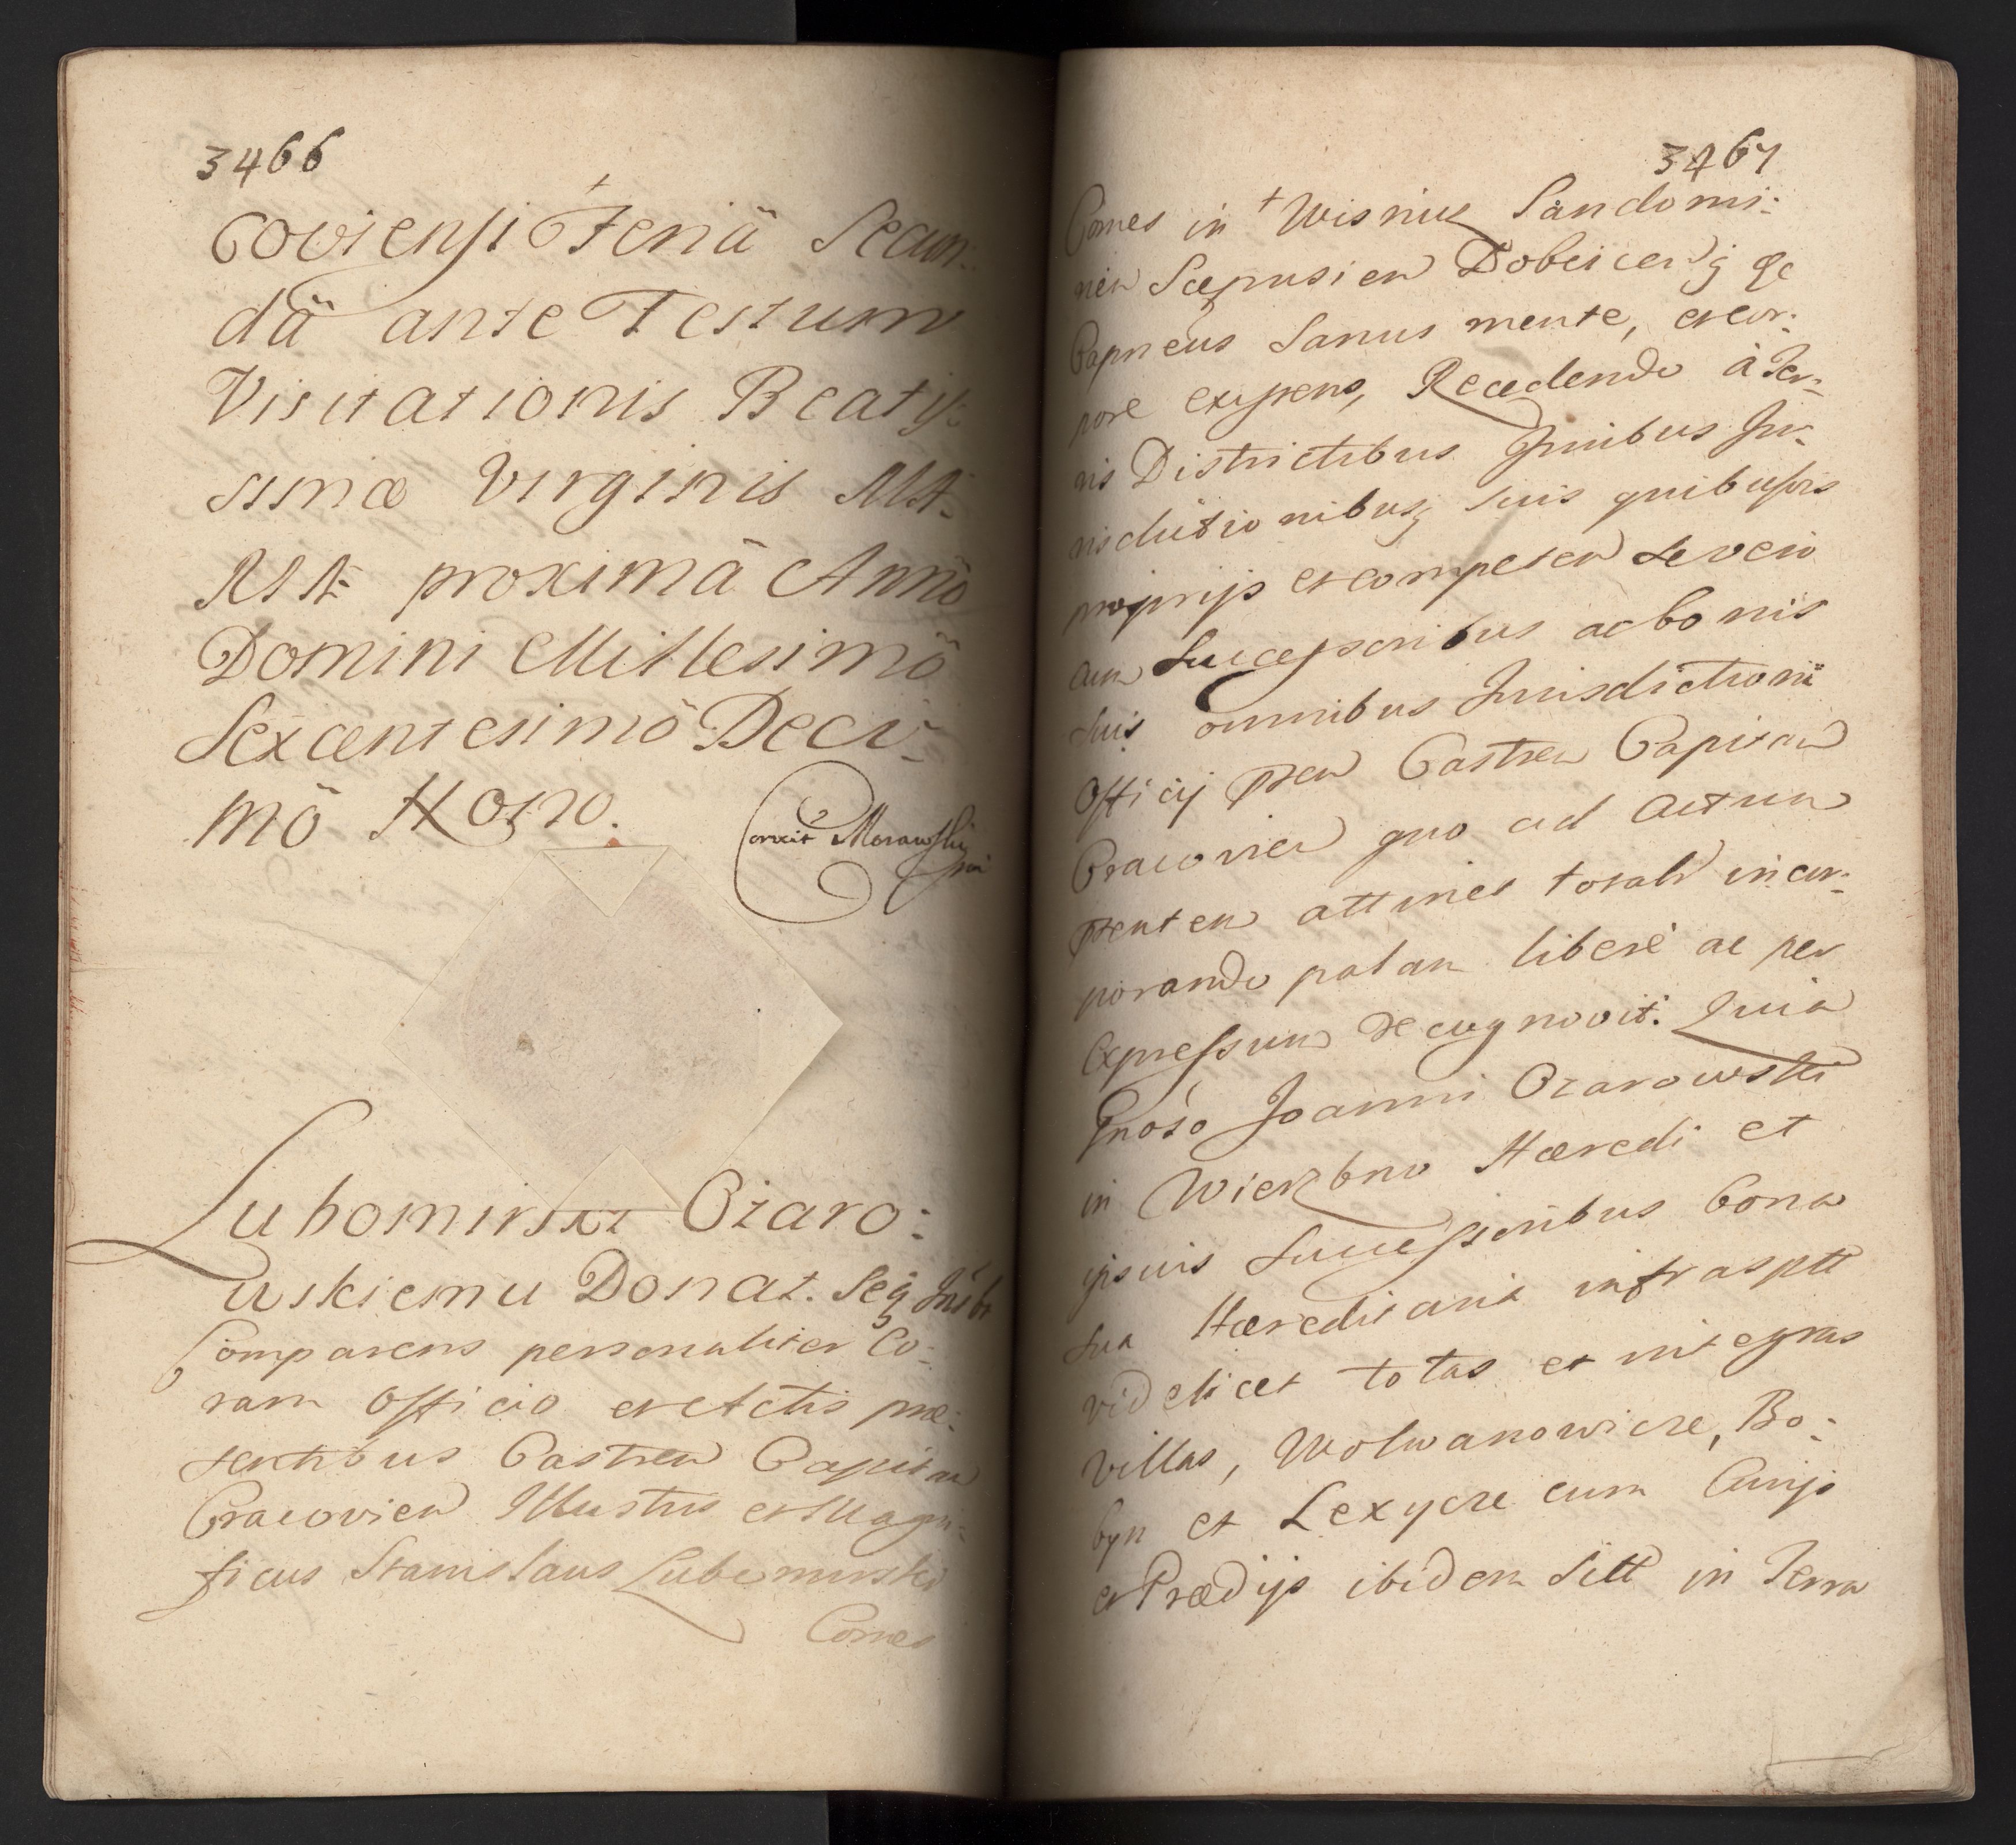 3466
coviensi Feriâ Secun:
dâ ante Festum
Visitationis Beatis:
simæ Virginis MA:
RIÆ proximâ Annô
Domini Millesimô
Sexcentesimô Deci-
mô Nono.
Correxit Morawski
Lubomirski Ożaro:
wskiemu Donat. Seq
Comparens personaliter Co:
ram Officio et Actis præ:
sentibus Castren Capitan
Cracovien Illustris et Magni:
ficus Stanislaus Lubomirski
Comes
3467
Comes in Wisnicz Sandomi:
rien Scepusien Dobcicen q̃ &c
Capneus Sanus mente, et cor:
pore existens, Recedendo à Ter:
ris Districtibus Juribus Ju:
risdictionibusq̃ suis quibusvis
proprijs et competen se vero
cum Successoribus ac bonis
suis omnibus Jurisdictioni
Officij pñtn Castren Capitan
Cracovien quo ad actum
pñtem attinet totalr incor:
porando palam liberè ac per
expressum recognovit. Quia
Gnoso Joanni Ozarowski
in Wierzbno Hæredi et
ipsius Successoribus bona
sua Hæreditaria infrasptt
videlicet totas et integras
Villas, Wolwanowicze, Bo:
byn et Lexycze cum Curijs
et Prædijs ibidem sitt in Terra